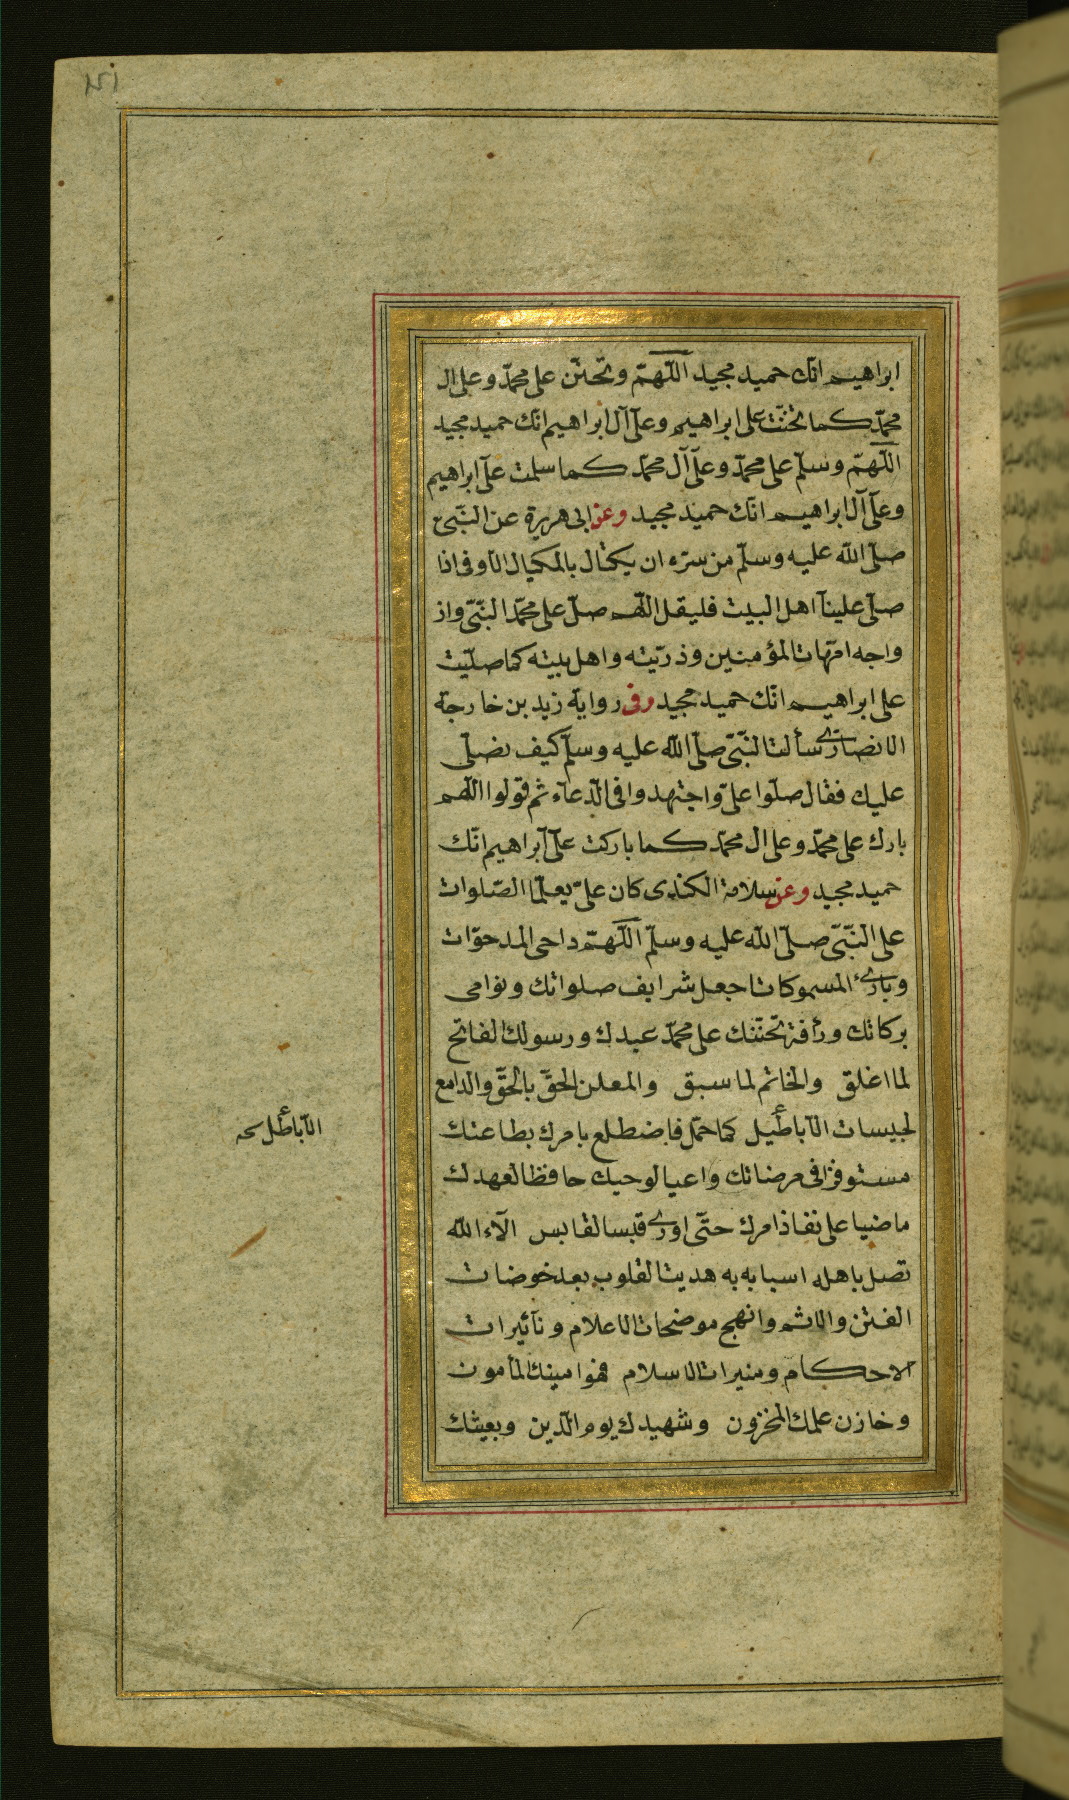 ١٥١
ابراهيم انّك حميد مجيد اللّهمّ وتحنّن على محمّد وعلى ال
محمّد كما تحنّنت على ابراهيم وعلى آل ابراهيم انّك حميد مجيد
اللّهمّ وسلّم على محمّد وعلى آل محمّد كما سلمت على ابراهيم
وعلى آل ابراهيم انّك حميد مجيد وعن ابى هريرة عن النّبىّ
صلّى اللّه عليه وسلّم من سرّه ان يكتال بالمكيال الاوفى اذا
صلّى علينا اهل البيت فليقل اللّهم صلّ على محمّد النّبىّ واز
واجه امّهات المؤمنين وذرّيّته واهل بيته كما صلّيت
على ابراهيم انّك حميد مجيد وفى رواية زيد بن خارجة
الانصارىّ سألت النّبىّ صلّى اللّه عليه وسلّم كيف نصلّى
عليك فقال صلّوا علىّ واجتهدوا فى الدّعآء ثم قولوا اللّهم
بارك على محمّد وعلى ال محمّد كما باركت على ابراهيم انّك
حميد مجيد وعن سلامة الكندى كان علىّ يعلّمنا الصّلوات
على النّبىّ صلّى اللّه عليه وسلّم اللّهمّ داحى المدحوّات
وبارئ المسموكات اجعل شرايف صلواتك ونوامى
بركاتك ورأفة تحنّنك على محمّد عبدك ورسولك الفاتح
لما اغلق والخاتم لما سبق والمعلن الحقّ بالحقّ والدامغ
لجيسات الأباطيل كما حمّل فاضطلع بامرك بطاعتك
الأباطل نخه
مستوفزا فى مرضاتك واعيا لوحيك حافظا لعهدك
ماضيا على نفاذ امرك حتّى اورى قبسا لقابس الآء اللّه
تصل باهله اسبابه به هديت القلوب بعد خوضات
الفتن والاثم وانهج موضحات الاعلام ونآئيرات
الاحكام ومنيرات الاسلام فهو امينك المأمون
وخازن علمك المخزون وشهيدك يوم الدّين وبعيثك